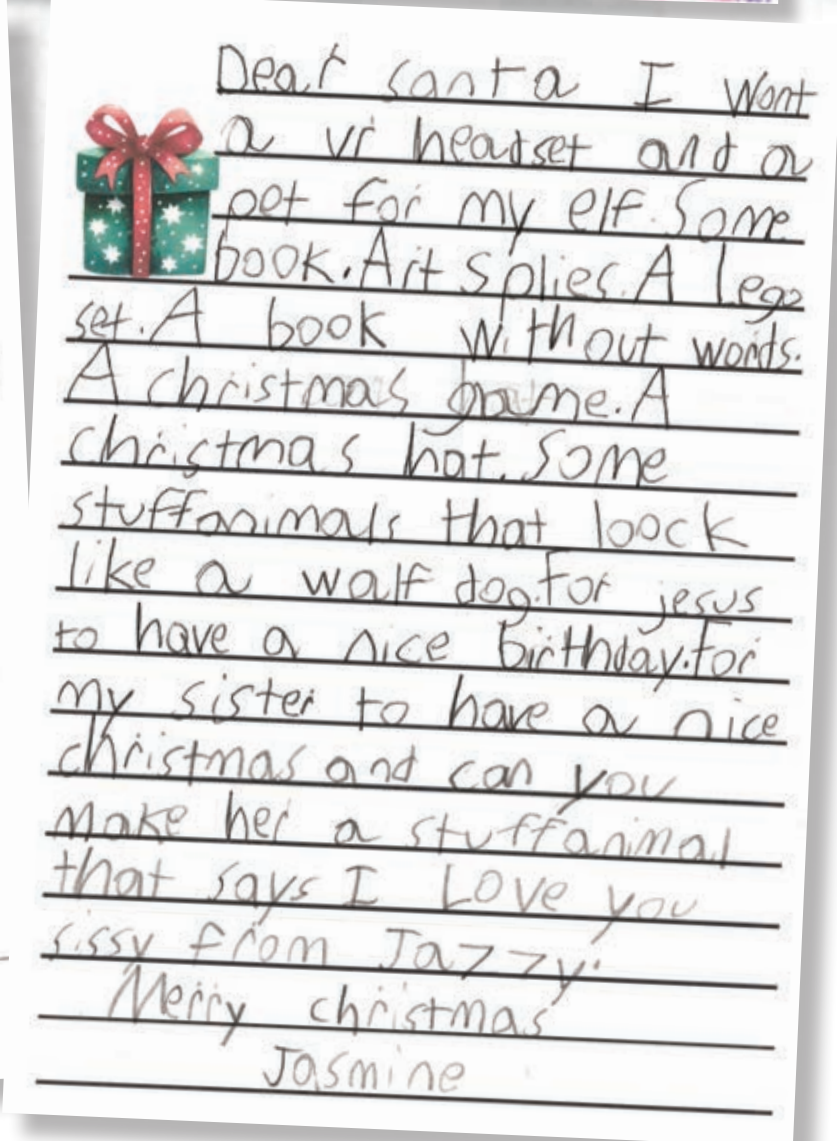 Dear santa I Wont
a vr headset and a
pet for my elf. Some
book. Art splies. A lego
set. A book without words.
A christmas game. A
christmas hat. Some
stuffanimals that loock
like a walf dog. For jesus
to have a nice birthday. For
my sister to have a nice
christmas and can you
make her a stuffanimal
that says I Love you
sissy from Jazzy.
Merry christmas
Jasmine